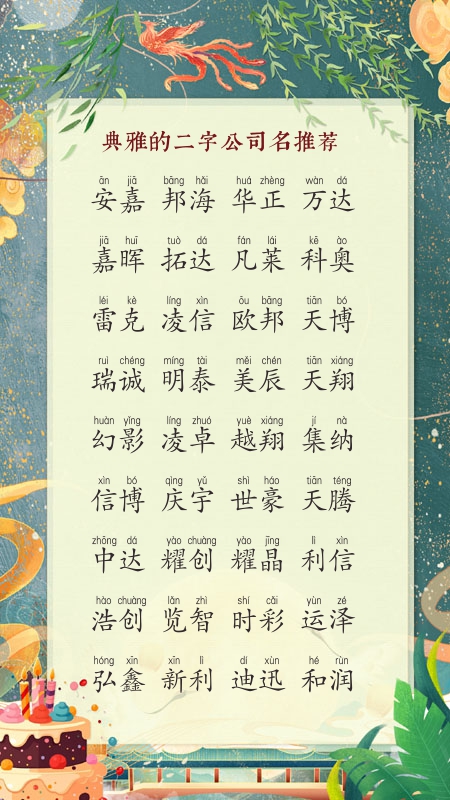 典雅的二字公司名推荐
ān jiā bāng hǎi huá zhèng wàn dá
安嘉 邦海 华正 万达
jiā huī tuò dá fán lái kē ào
嘉晖 拓达 凡莱 科奥
léi kè líng xìn ōu bāng tiān bó
雷克 凌信 欧邦 天博
ruì chéng míng tài měi chén tiān xiáng
瑞诚 明泰 美辰 天翔
huàn yǐng líng zhuó yuè xiáng jí nà
幻影 凌卓 越翔 集纳
xìn bó qìng yǔ shì háo tiān téng
信博 庆宇 世豪 天腾
zhōng dá yào chuàng yào jīng lì xìn
中达 耀创 耀晶 利信
hào chuàng lǎn zhì shí cǎi yùn zé
浩创 览智 时彩 运泽
hóng xīn xīn lì dí xùn hé rùn
弘鑫 新利 迪迅 和润